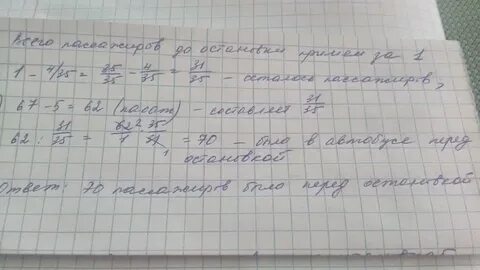 Всего пассажиров до остановки примем за 1
1 - 4/35 = 35/35 - 4/35 = 31/35 - осталось пассажиров,
67 - 5 = 62 (пасаж) - составляет 31/35
62 : 31/35 = 62² · 35 / 1 · 31₁ = 70 - было в автобусе перед
остановкой
Ответ: 70 пассажиров было перед остановкой